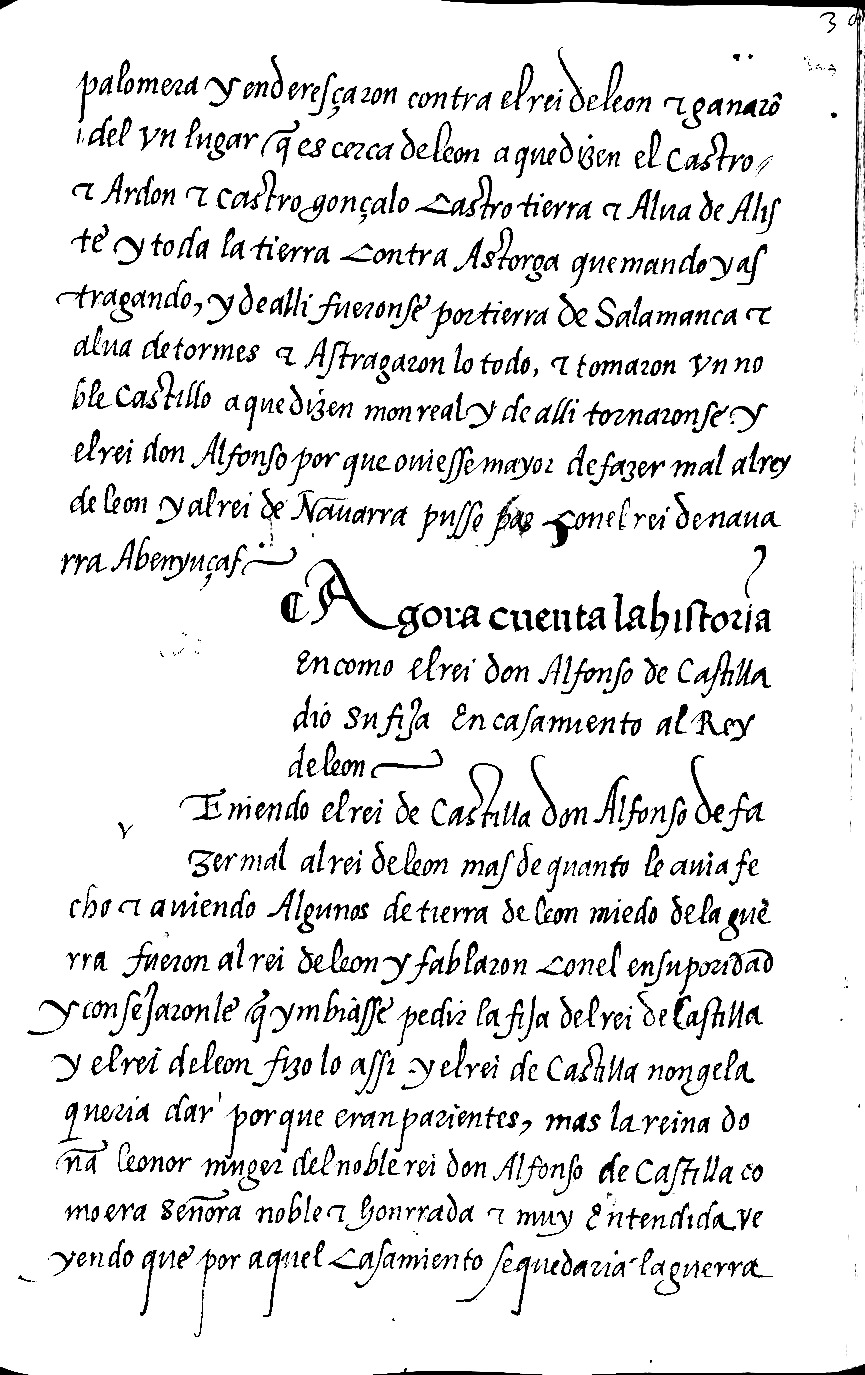 3
palomera y enderesçaron contra el rei de leon τ ganarõ
del vn lugar q̃ es cerca de leon a que dizen el Castro
τ Ardon τ castro gonçalo castro tierra τ Alua de Alis
te y toda la tierra contra Astorga quemando y as
tragando, y de alli fueronse por tierra de Salamanca τ
alua de tormes τ Astragaron lo todo, τ tomaron vn no
ble Castillo a que dizen monreal y de alli tornaronse y
el rei don Alfonso por que ouiesse mayor de fazer mal al rey
de leon y al rei de Nauarra pusse paz con el rei de naua
rra Abenyuçaf
Agora cuenta la historia
En como el rei don Alfonso de Castilla
dio su fija En casamiento al Rey
de leon
Teniendo el rei de Castilla don Alfonso de fa
zer mal al rei de leon mas de quanto le auia fe
cho τ auiendo Algunos de tierra de leon miedo de la gue
rra fueron al rei de leon y fablaron con el en suporidad
y consejaronle q̃ ymbiasse pedir la fija del rei de Castilla
y el rei de leon fizo lo assi y el rei de Castilla non gela
queria dar porque eran parientes, mas la reina do
ña leonor muger del noble rei don Alfonso de Castilla co
mo era señora noble τ honrrada τ muy Entendida ve
yendo que por aquel casamiento se quedaria la guerra